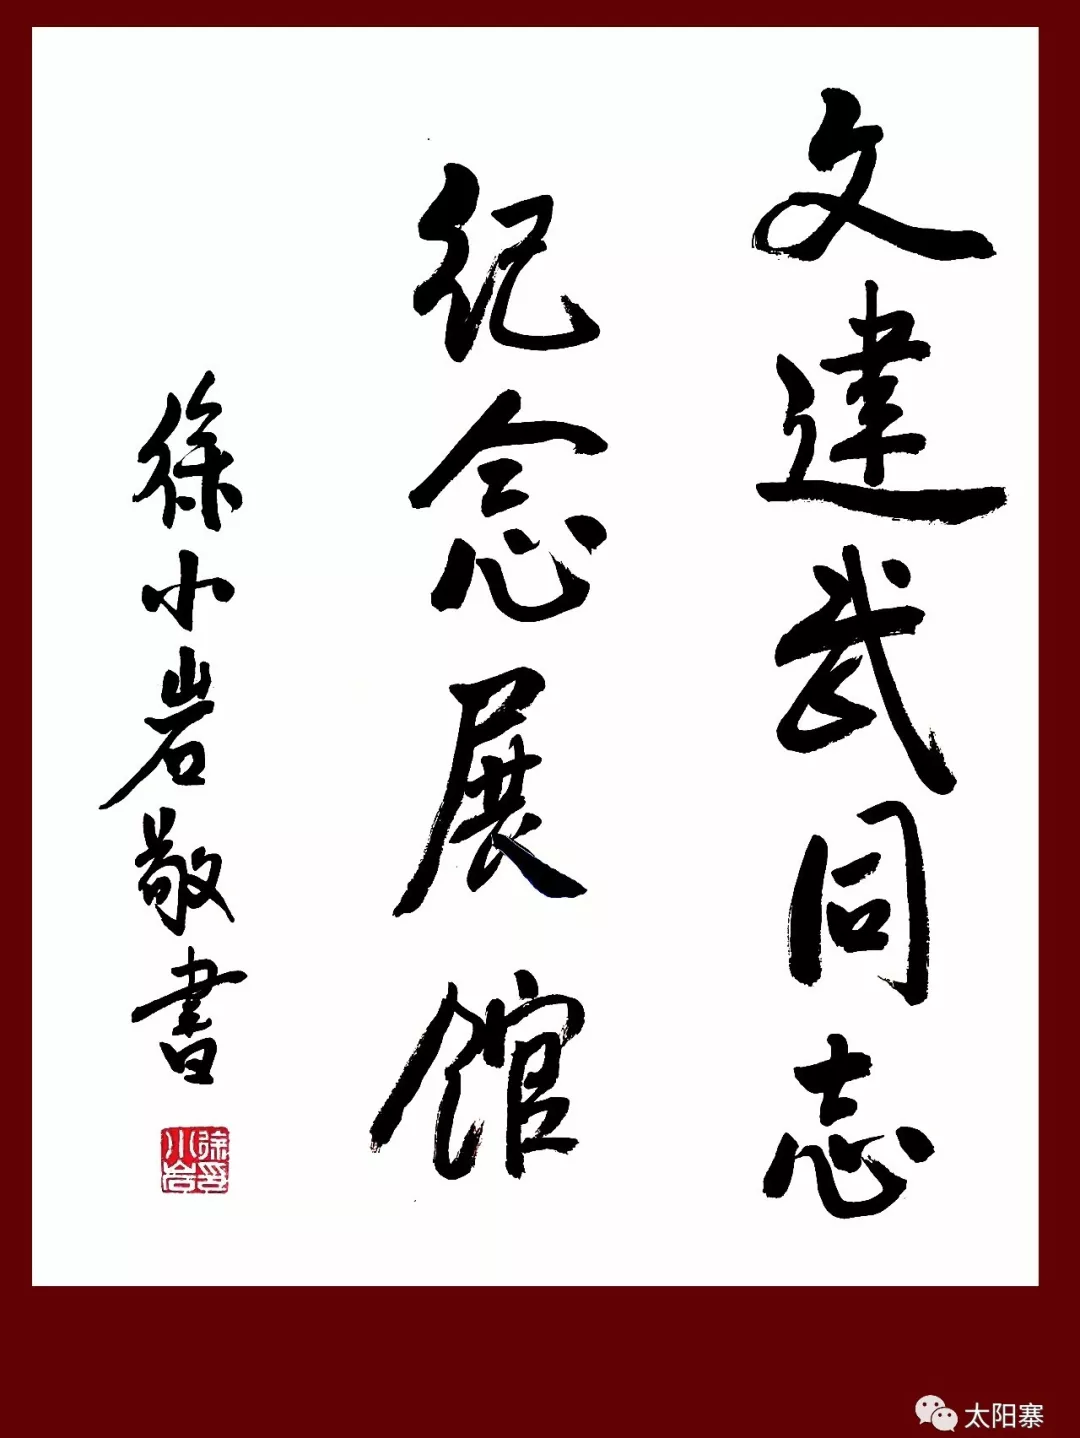 文建武同志
纪念展馆
徐小岩敬書
徐小岩印
太阳寨